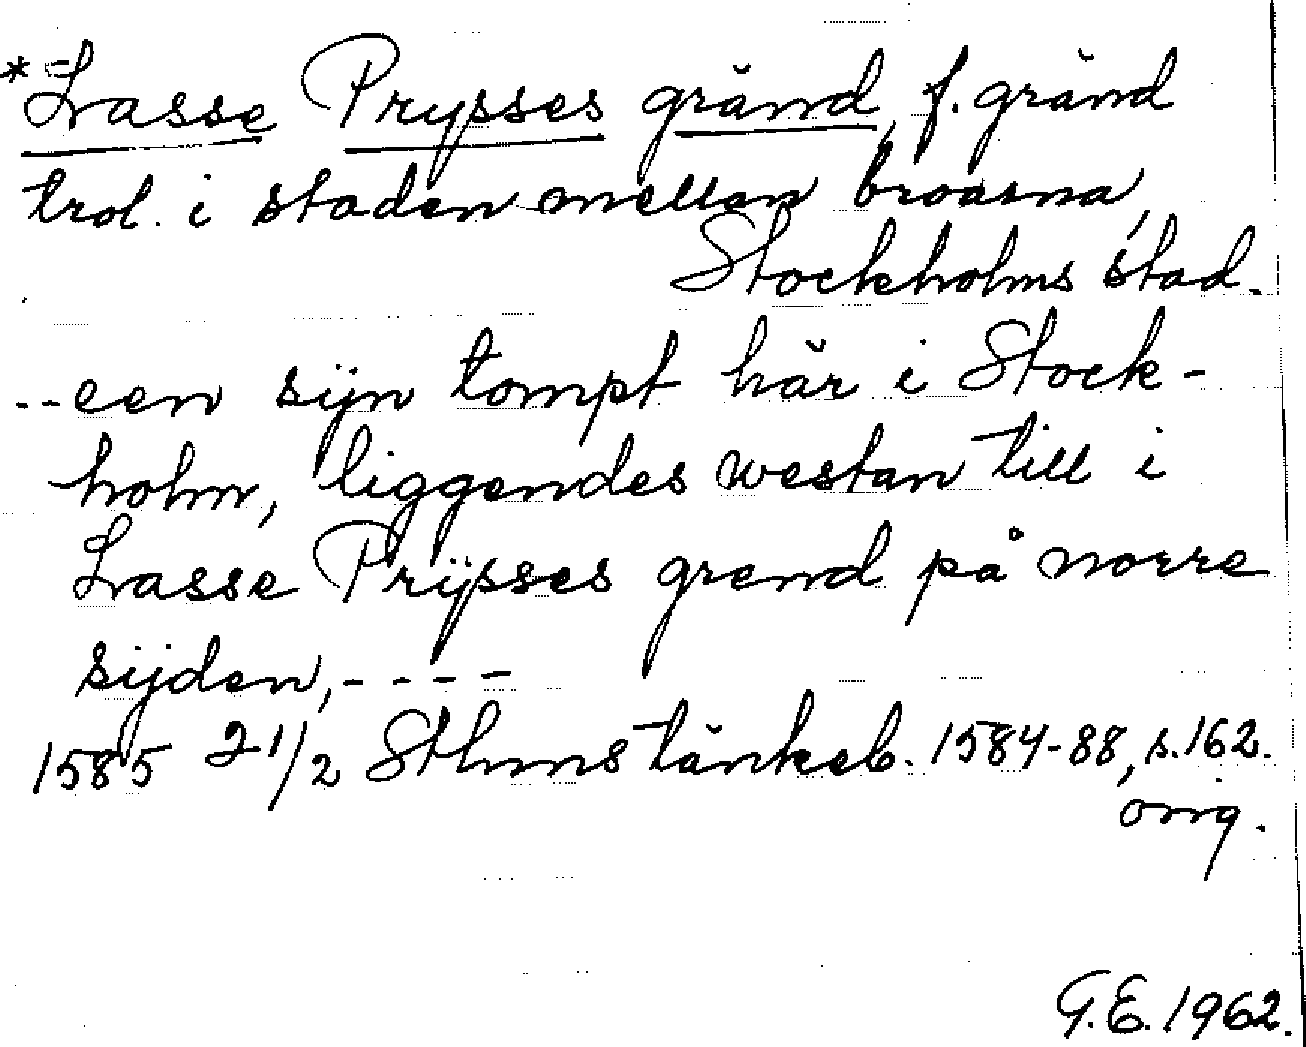 *Lasse Prysses gränd, f. gränd
trol. i staden mellan broarna,
Stockholms stad.
--een sijn tompt här i Stock-
holm, liggendes westan till i
Lasse Prijsses grend på norre
sijden,----
1585 21/2 Sthms tänkeb. 1584-88, s.162.
orig.
G.E.1962.